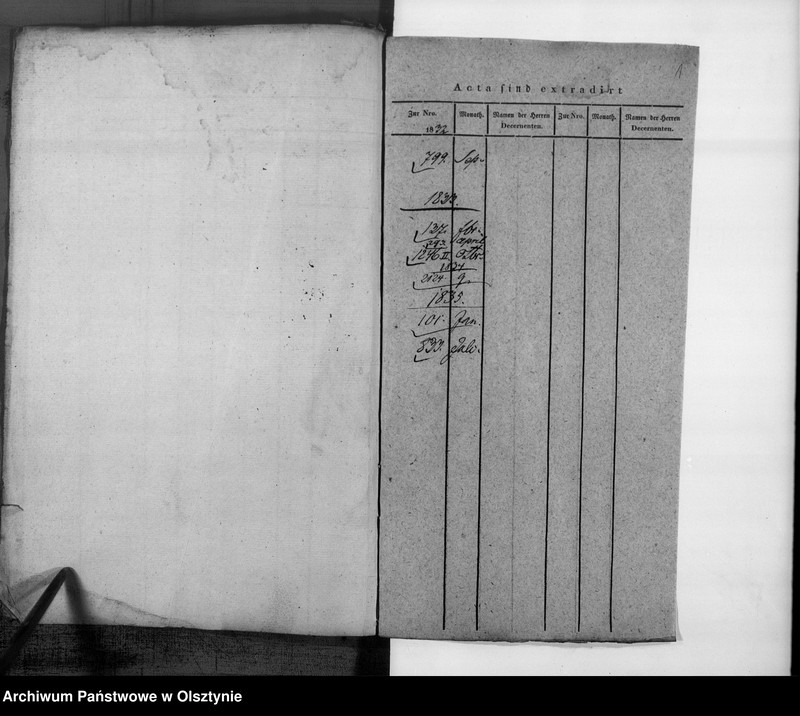 1
Acta sind extradirt
Zur Nro. Monath. Namen der Herren Decernenten. Zur Nro. Monath. Namen der Herren Decernenten.
1832
799. Sep.
1833.
137. fbr.
293. april
1246 II
1834
2124.
1835.
101. Jan.
533. Juli.
Archiwum Państwowe w Olsztynie